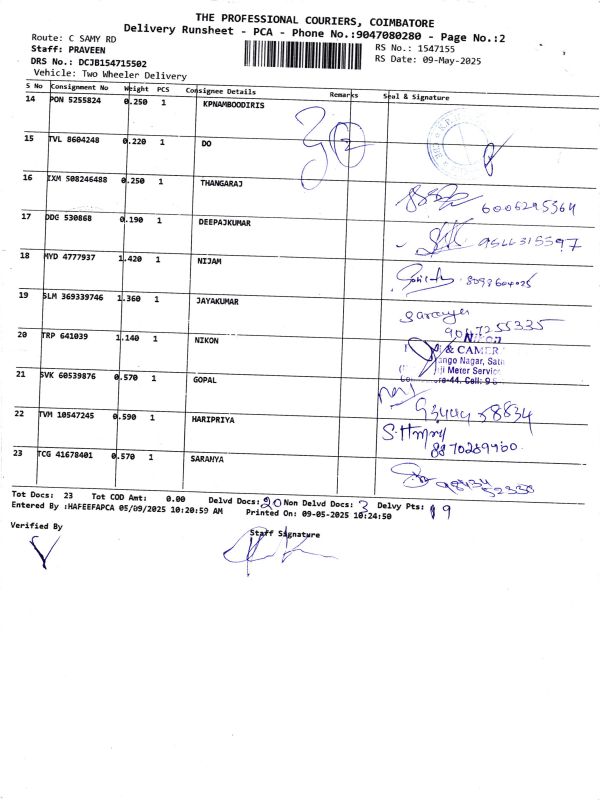 THE PROFESSIONAL COURIERS, COIMBATORE
Delivery Runsheet - PCA - Phone No.:9047080280 - Page No.:2
Route: C SAMY RD
RS No.: 1547155
Staff: PRAVEEN
RS Date: 09-May-2025
DRS No.: DCJB154715502
Vehicle: Two Wheeler Delivery
S No Consignment No Weight PCS Consignee Details Remarks Seal & Signature
14 PON 5255824 0.250 1 KPNAMBOODIRIS
15 TVL 8604248 0.220 1 DO
16 IXM 508246488 0.250 1 THANGARAJ
6006295364
17 DDG 530868 0.190 1 DEEPAJKUMAR
18 MYD 4777937 1.420 1 NIJAM
19 SLM 369339746 1.360 1 JAYAKUMAR
9047255335
20 TRP 641039 1.140 1 NIKON
& CAMER
ango Nagar, Sat
ji Meter Service
-44. Cell:
21 SVK 60539876 0.570 1 GOPAL
22 TVM 10547245 0.590 1 HARIPRIYA
8870269960
23 TCG 41678401 0.570 1 SARANYA
Tot Docs: 23 Tot COD Amt: 0.00 Delvd Docs: 20 Non Delvd Docs: 3 Delvy Pts: 19
Entered By :HAFEEFAPCA 05/09/2025 10:20:59 AM Printed On: 09-05-2025 10:24:50
Verified By
Staff Signature